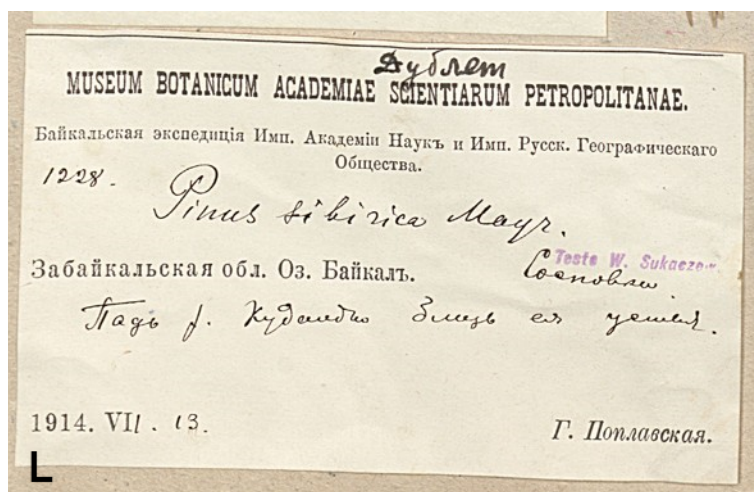 Дублет
MUSEUM BOTANICUM ACADEMIAE SCIENTIARUM PETROPOLITANAE.
Байкальская экспедиція Имп. Академіи Наукъ и Имп. Русск. Географическаго
Общества.
1228.
Pinus sibirica Mayr.
Teste W. Sukaczew.
Забайкальская обл. Оз. Байкалъ. Сосновка
Падь р.
1914. VII. 13.
Г. Поплавская.
L